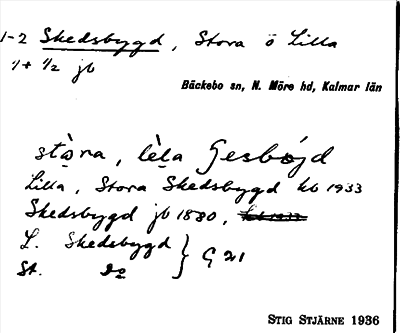 1-2 Skedsbygd, Stora o Lilla
1/1 + 1/2 jb
Bäckebo sn, N. Möre hd, Kalmar län
stòra, lèla Ꞔesbójd
Lilla, Stora Skedsbygd kb 1933
Skedsbygd jb 1880,
L. Skedsbygd } G 21
St. Do
STIG STJÄRNE 1936